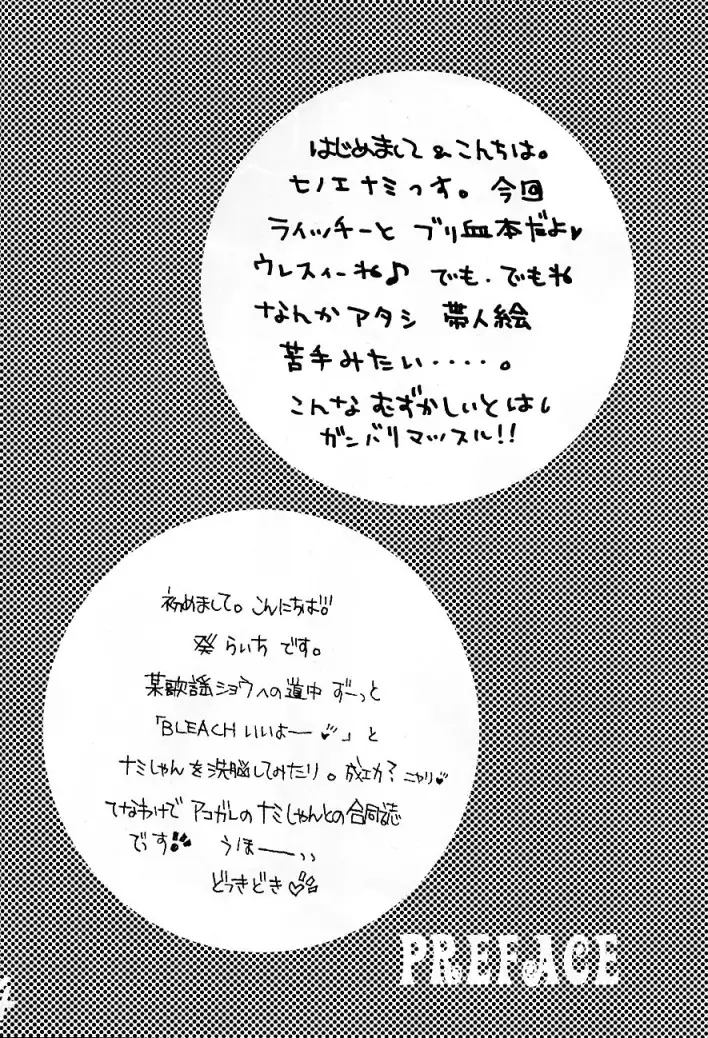 はじめまして&こんちは。
七ノエナミっす。今回
ライッチーと ブリ血本だよ♥
ウレスィーね♪ でも・でもね
なんかアタシ 帯人絵
苦手みたい・・・・。
こんな むずかしいとはι
ガンバリマッスル!!
初めまして。こんにちは!!
癸 らいち です。
某歌謡ショウへの道中 ずーっと
「BLEACHいいよー♥」と
ナミしゃんを洗脳してみたり。成功? ニヤリ♥
てなわけで アコガレの ナミしゃんとの合同誌
でっす!! うほーーッッ
どっきどき♥
PREFACE
4